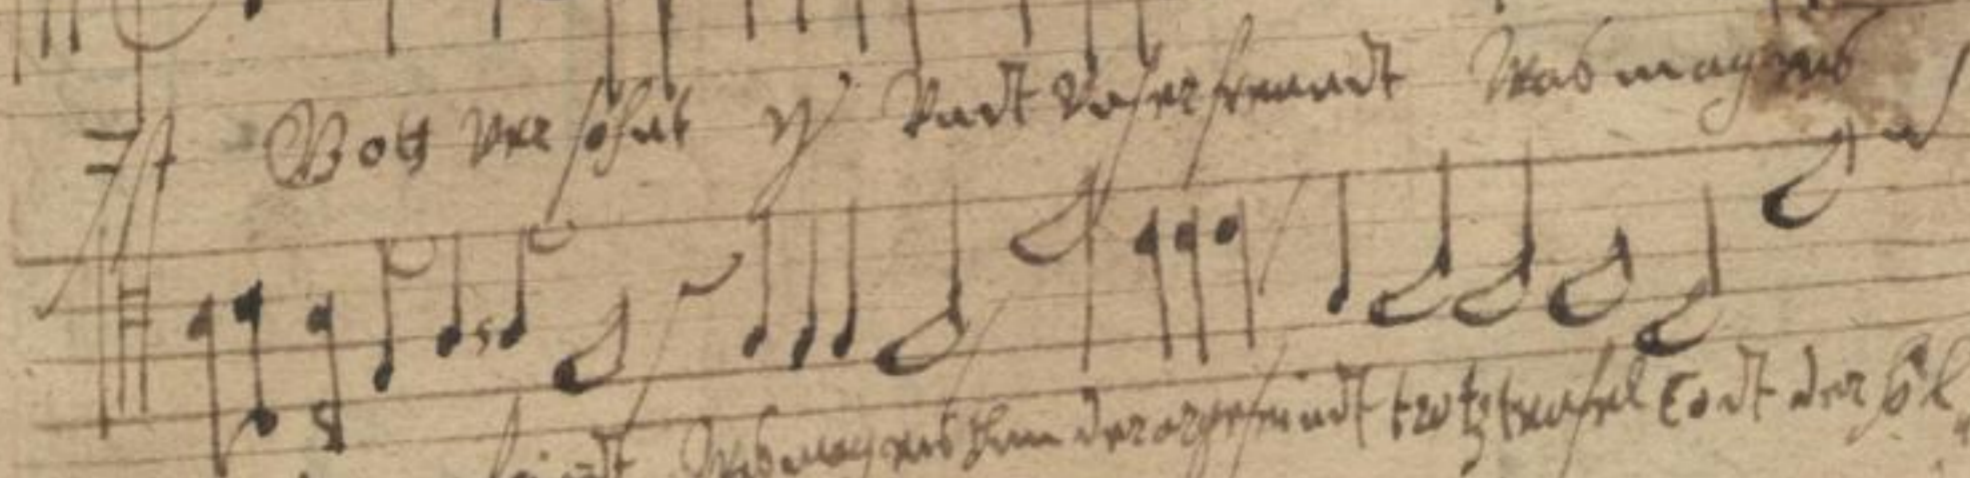 Ist Gott versohnt vndt vnser freundt Was mag vns
feindt Was mag vns thun der arge feindt trotz teufel Todt der höl